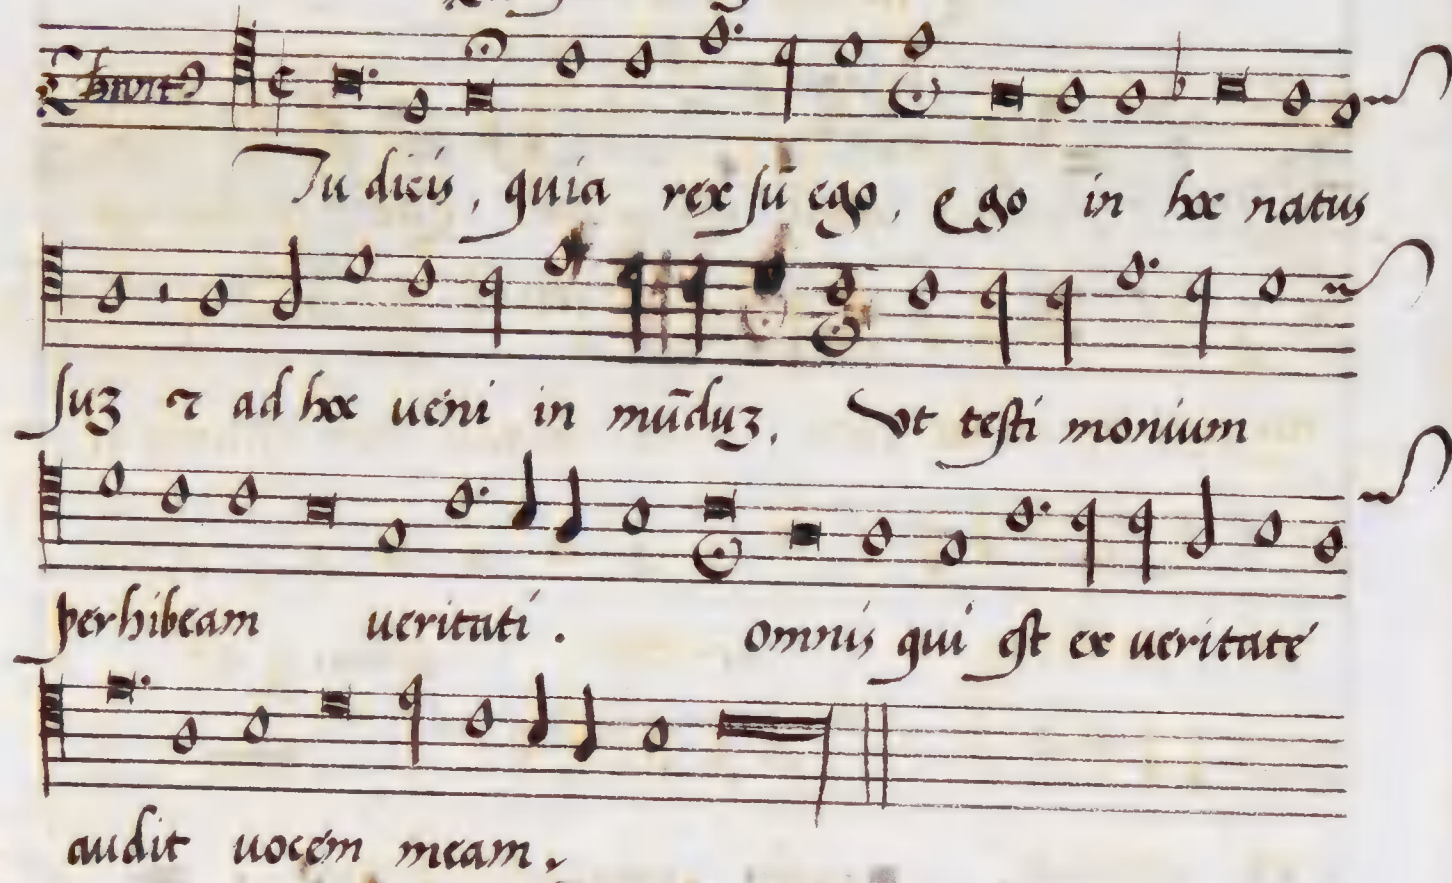 Tu dicis, quia rex sū ego, ego in hoc natus
suꝫ ⁊ ad hoc ueni in mūduꝫ, Vt testimonium
perhibeam ueritati. omnis qui est ex ueritate
audit uocem meam.